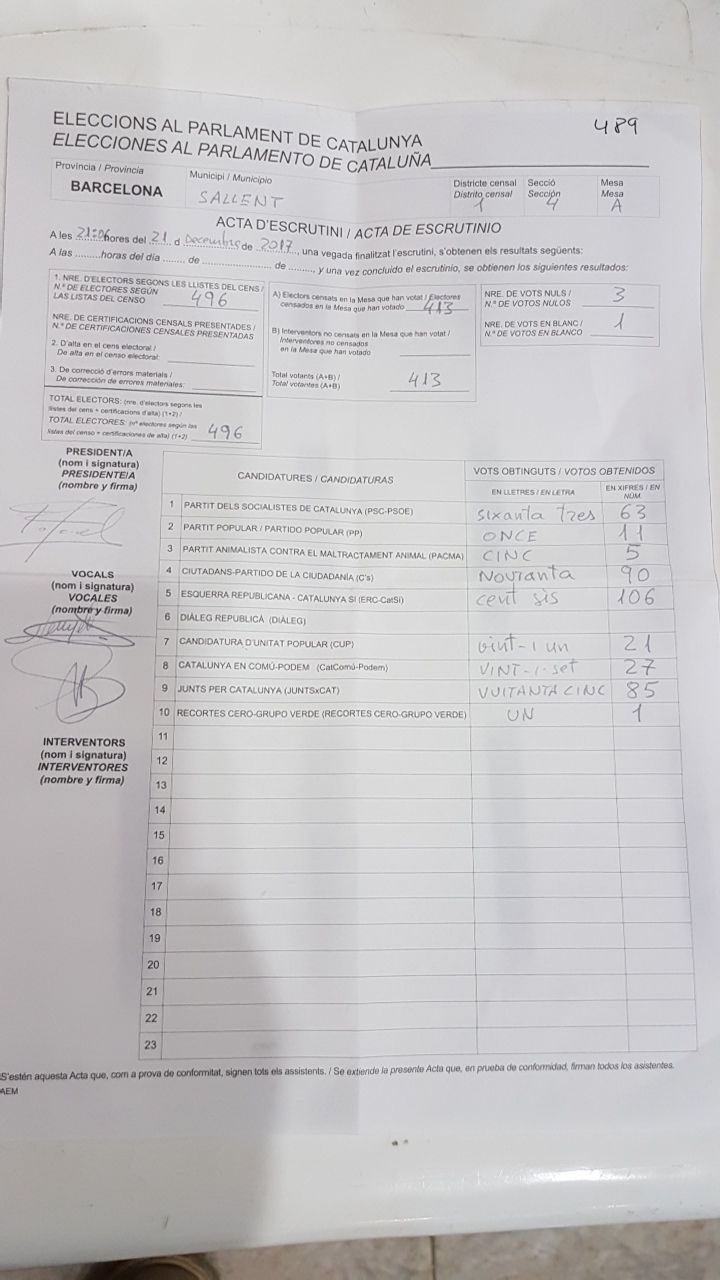 489
ELECCIONS AL PARLAMENT DE CATALUNYA
ELECCIONES AL PARLAMENTO DE CATALUÑA
Provincia / Provincia
BARCELONA
Municipi / Municipio
SALLENT
Districte censal Secció Mesa
Distrito censal Sección Mesa
1 4 A
ACTA D'ESCRUTINI / ACTA DE ESCRUTINIO
A les 21:06 hores del 21 d Decembre de 2017, una vegada finalitzat l'escrutini, s'obtenen els resultats següents:
A las .........horas del día ...... de ...................... de ........, y una vez concluido el escrutinio, se obtienen los siguientes resultados:
1. NRE. D'ELECTORS SEGONS LES LLISTES DEL CENS /
N.º DE ELECTORES SEGÚN
LAS LISTAS DEL CENSO 496
NRE. DE CERTIFICACIONS CENSALS PRESENTADES /
N.º DE CERTIFICACIONES CENSALES PRESENTADAS
2. D'alta en el cens electoral /
De alta en el censo electoral:
3. De correcció d'errors materials /
De corrección de errores materiales:
TOTAL ELECTORS: (nre. d'electors segons les
llistes del cens + certificacions d'alta) (1+2) /
TOTAL ELECTORES: (nº electores según las
listas del censo + certificaciones de alta) (1+2) 496
A) Electors censats en la Mesa que han votat / Electores
censados en la Mesa que han votado 413
B) Interventors no censats en la Mesa que han votat /
Interventores no censados
en la Mesa que han votado
Total votants (A+B) /
Total votantes (A+B) 413
NRE. DE VOTS NULS /
N.º DE VOTOS NULOS 3
NRE. DE VOTS EN BLANC /
N.º DE VOTOS EN BLANCO 1
PRESIDENT/A
(nom i signatura)
PRESIDENTE/A
(nombre y firma)
VOCALS
(nom i signatura)
VOCALES
(nombre y firma)
INTERVENTORS
(nom i signatura)
INTERVENTORES
(nombre y firma)
CANDIDATURES / CANDIDATURAS
VOTS OBTINGUTS / VOTOS OBTENIDOS
EN LLETRES / EN LETRA
EN XIFRES / EN NÚM.
1 PARTIT DELS SOCIALISTES DE CATALUNYA (PSC-PSOE) sixanta tres 63
2 PARTIT POPULAR / PARTIDO POPULAR (PP) ONCE 11
3 PARTIT ANIMALISTA CONTRA EL MALTRACTAMENT ANIMAL (PACMA) CINC 5
4 CIUTADANS-PARTIDO DE LA CIUDADANÍA (C's) Novranta 90
5 ESQUERRA REPUBLICANA - CATALUNYA SÍ (ERC-CatSí) cent sis 106
6 DIÀLEG REPUBLICÀ (DIÀLEG)
7 CANDIDATURA D'UNITAT POPULAR (CUP) vint-i un 21
8 CATALUNYA EN COMÚ-PODEM (CatComú-Podem) VINT-i-set 27
9 JUNTS PER CATALUNYA (JUNTSxCAT) VUITANTA CINC 85
10 RECORTES CERO-GRUPO VERDE (RECORTES CERO-GRUPO VERDE) UN 1
11
12
13
14
15
16
17
18
19
20
21
22
23
S'estén aquesta Acta que, com a prova de conformitat, signen tots els assistents. / Se extiende la presente Acta que, en prueba de conformidad, firman todos los asistentes.
AEM